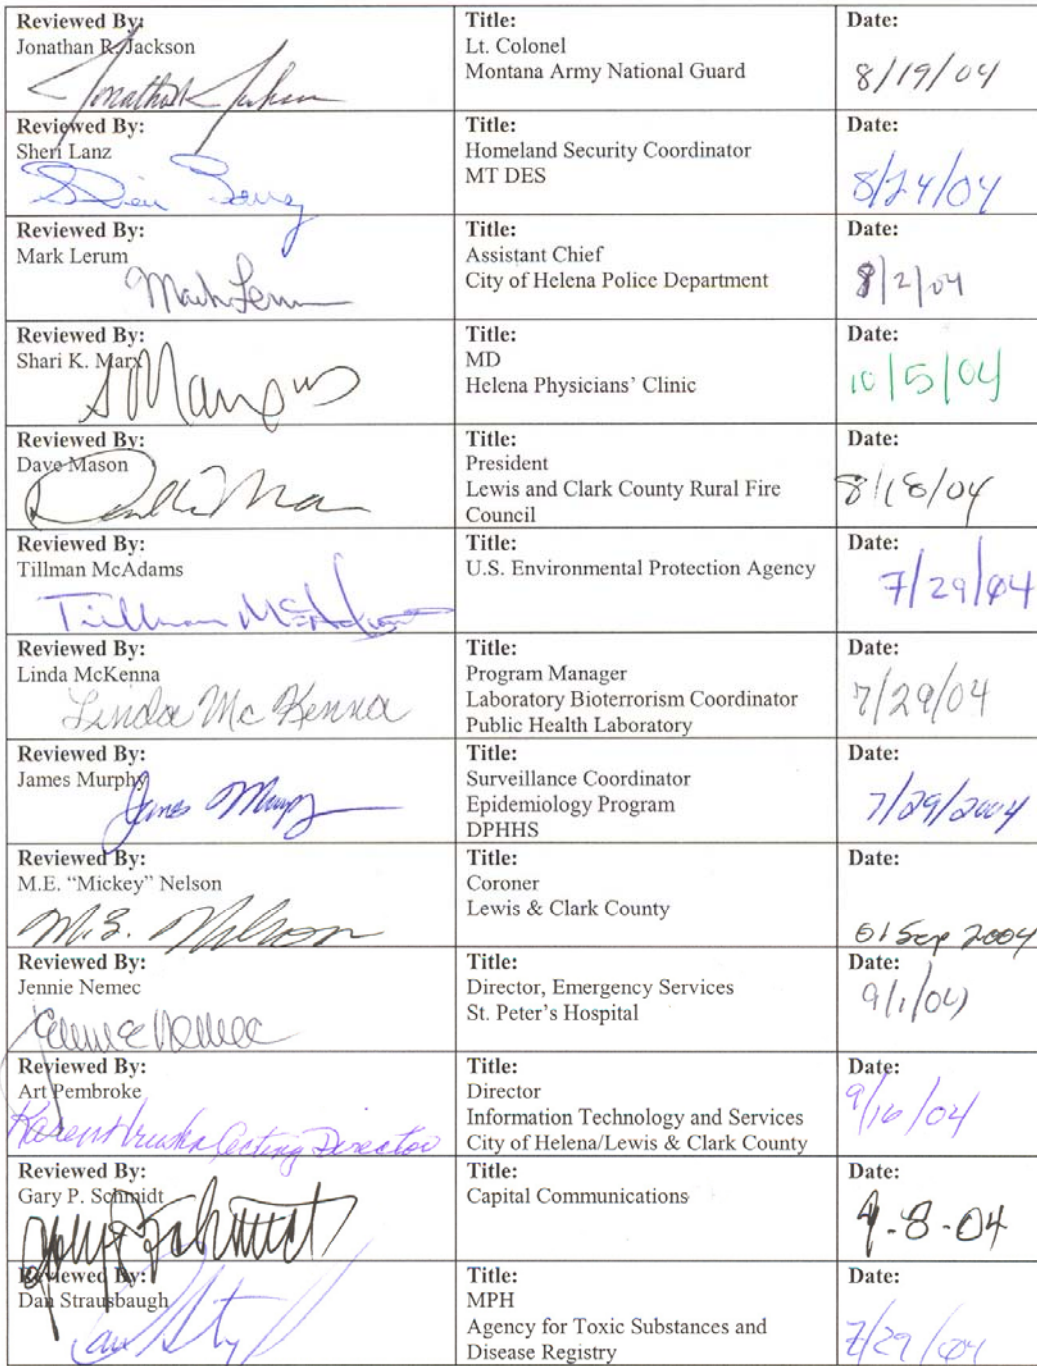 Reviewed By:
Jonathan R. Jackson
Title:
Lt. Colonel
Montana Army National Guard
Date:
8/19/04
Reviewed By:
Sheri Lanz
Title:
Homeland Security Coordinator
MT DES
Date:
8/24/04
Reviewed By:
Mark Lerum
Title:
Assistant Chief
City of Helena Police Department
Date:
8/2/04
Reviewed By:
Shari K. Marx
Title:
MD
Helena Physicians' Clinic
Date:
10/5/04
Reviewed By:
Dave Mason
Title:
President
Lewis and Clark County Rural Fire
Council
Date:
8/18/04
Reviewed By:
Tillman McAdams
Tillman McAdams
Title:
U.S. Environmental Protection Agency
Date:
7/29/04
Reviewed By:
Linda McKenna
Linda McKenna
Title:
Program Manager
Laboratory Bioterrorism Coordinator
Public Health Laboratory
Date:
7/29/04
Reviewed By:
James Murphy
James Murphy
Title:
Surveillance Coordinator
Epidemiology Program
DPHHS
Date:
7/29/2004
Reviewed By:
M.E. "Mickey" Nelson
M.E. Nelson
Title:
Coroner
Lewis & Clark County
Date:
01 Sep 2004
Reviewed By:
Jennie Nemec
Jennie Nemec
Title:
Director, Emergency Services
St. Peter's Hospital
Date:
9/1/04
Reviewed By:
Art Pembroke
Karen Hruska Acting Director
Title:
Director
Information Technology and Services
City of Helena/Lewis & Clark County
Date:
9/16/04
Reviewed By:
Gary P. Schmidt
Title:
Capital Communications
Date:
9-8-04
Reviewed By:
Dan Strausbaugh
Title:
MPH
Agency for Toxic Substances and
Disease Registry
Date:
7/29/04